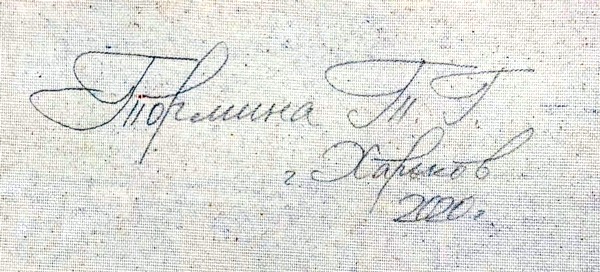 Тюрмина Т. Г.
г. Харьков
2020 г.